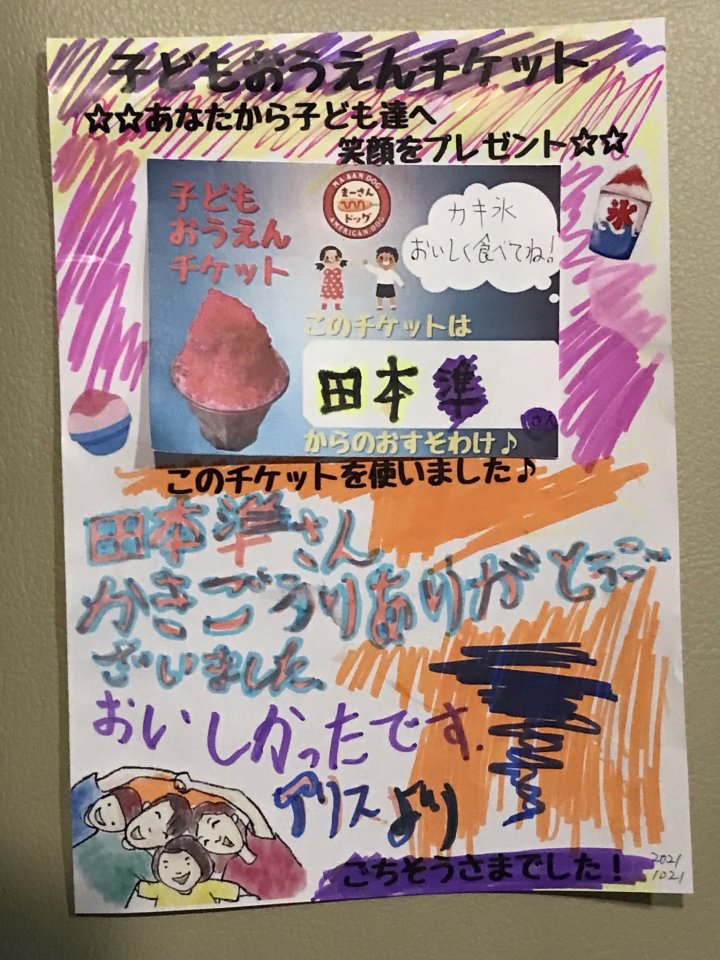 子どもおうえんチケット
☆☆あなたから子ども達へ
笑顔をプレゼント☆☆
子ども
おうえん
チケット
MA SAN DOG
まーさん
ドッグ
AMERICAN DOG
カキ氷
おいしく食べてね!
氷
このチケットは
田本 準
さん
からのおすそわけ♪
このチケットを使いました♪
田本準さん
かきごうりありがとうご
ざいました。
おいしかったです.
アリスより
ごちそうさまでした!
2021
1021